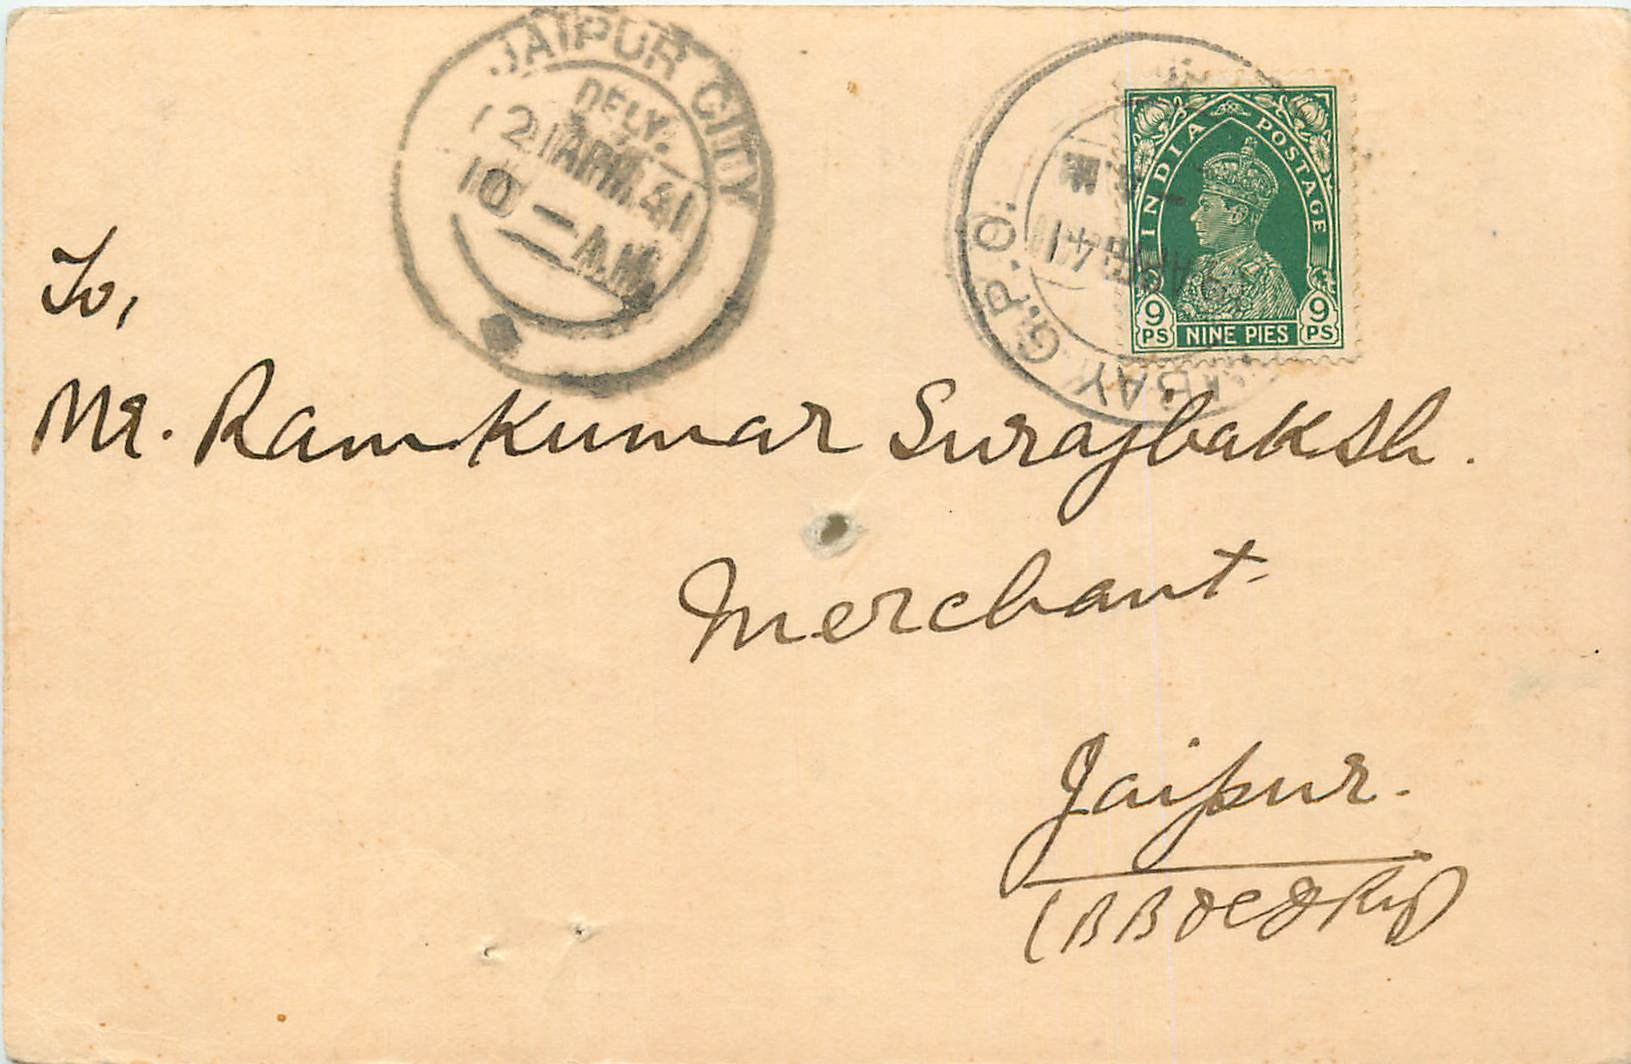 JAIPUR CITY
DELY.
21 APR. 41
10 - A.M.
BAY G.P.O.
41
INDIA POSTAGE
9 PS NINE PIES 9 PS
To,
Mr. Ramkumar Surajbaksh.
Merchant
Jaipur.
(BB&CIRly)